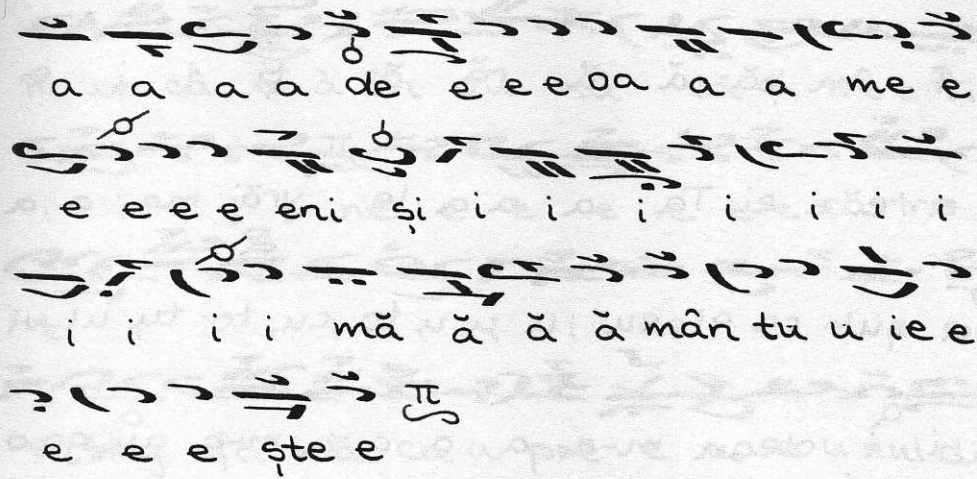 a a a a de e e e oa a a me e
e e e e eni și i i i i i i i
i i i i mă ă ă ă mân tu u ie e
e e e ște e π